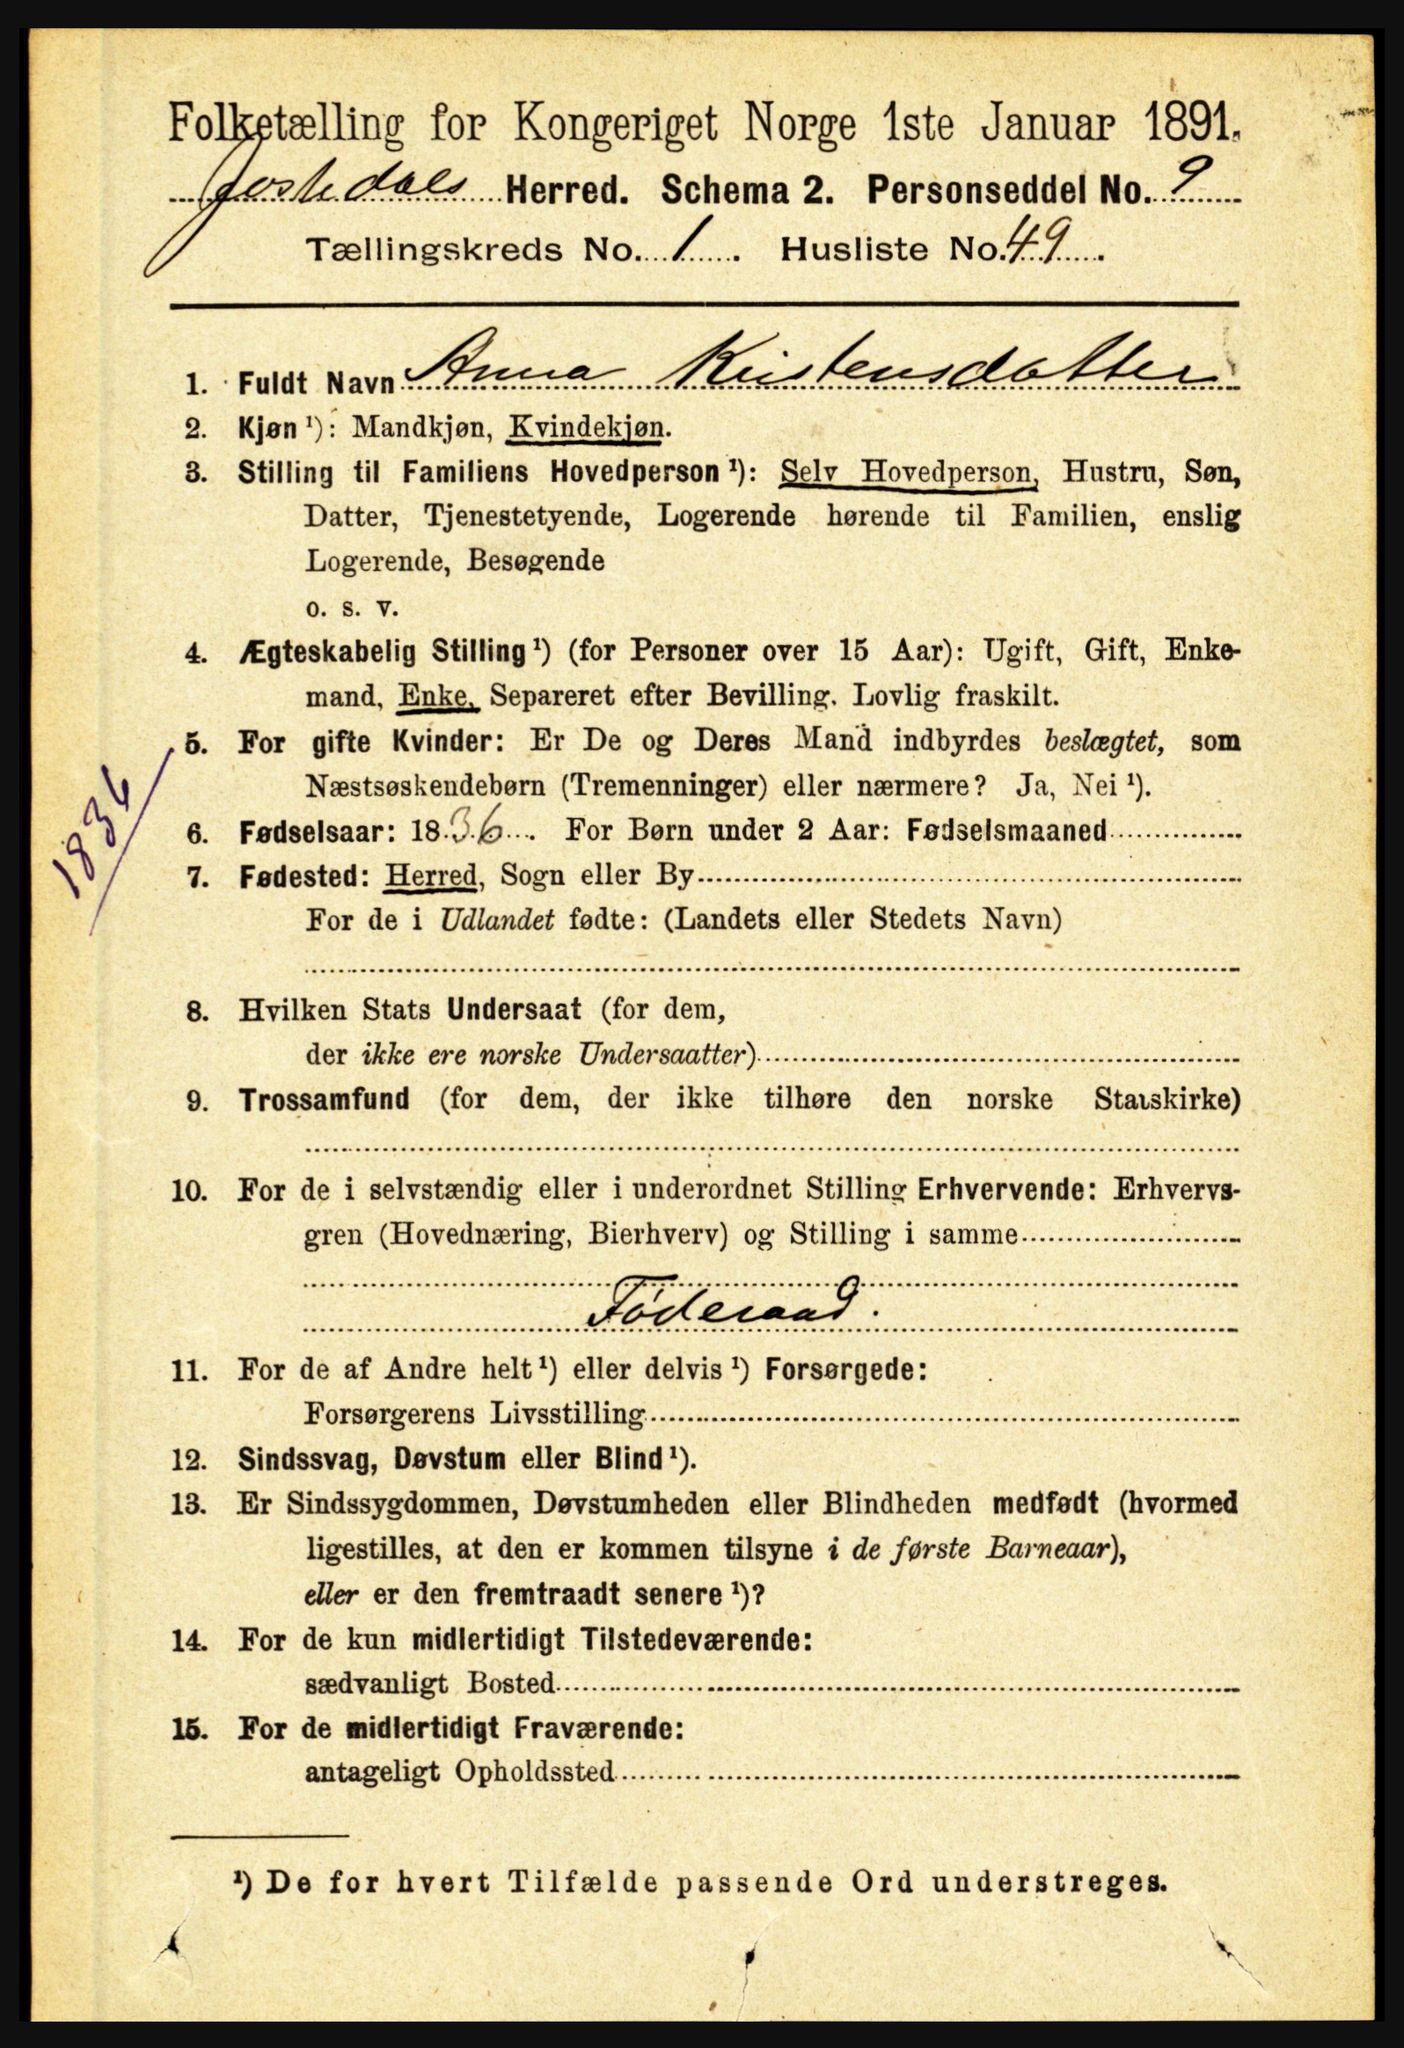 Folketælling for Kongeriget Norge 1ste Januar 1891.
Jostedals Herred. Schema 2. Personseddel No. 9
Tællingskreds No. 1. Husliste No. 49.
1. Fuldt Navn Anna Kristensdatter
2. Kjøn ¹): Mandkjøn, Kvindekjøn.
3. Stilling til Familiens Hovedperson ¹): Selv Hovedperson, Hustru, Søn,
Datter, Tjenestetyende, Logerende hørende til Familien, enslig
Logerende, Besøgende
o. s. v.
4. Ægteskabelig Stilling ¹) (for Personer over 15 Aar): Ugift, Gift, Enke-
mand, Enke, Separeret efter Bevilling. Lovlig fraskilt.
5. For gifte Kvinder: Er De og Deres Mand indbyrdes beslægtet, som
Næstsøskendebørn (Tremenninger) eller nærmere? Ja, Nei ¹).
1836
6. Fødselsaar: 1836. For Børn under 2 Aar: Fødselsmaaned
7. Fødested: Herred, Sogn eller By
For de i Udlandet fødte: (Landets eller Stedets Navn)
8. Hvilken Stats Undersaat (for dem,
der ikke ere norske Undersaatter)
9. Trossamfund (for dem, der ikke tilhøre den norske Statskirke)
10. For de i selvstændig eller i underordnet Stilling Erhvervende: Erhvervs-
gren (Hovednæring, Bierhverv) og Stilling i samme
Føderaad.
11. For de af Andre helt ¹) eller delvis ¹) Forsørgede:
Forsørgerens Livsstilling
12. Sindssvag, Døvstum eller Blind ¹).
13. Er Sindssygdommen, Døvstumheden eller Blindheden medfødt (hvormed
ligestilles, at den er kommen tilsyne i de første Barneaar),
eller er den fremtraadt senere ¹)?
14. For de kun midlertidigt Tilstedeværende:
sædvanligt Bosted
15. For de midlertidigt Fraværende:
antageligt Opholdssted
¹) De for hvert Tilfælde passende Ord understreges.